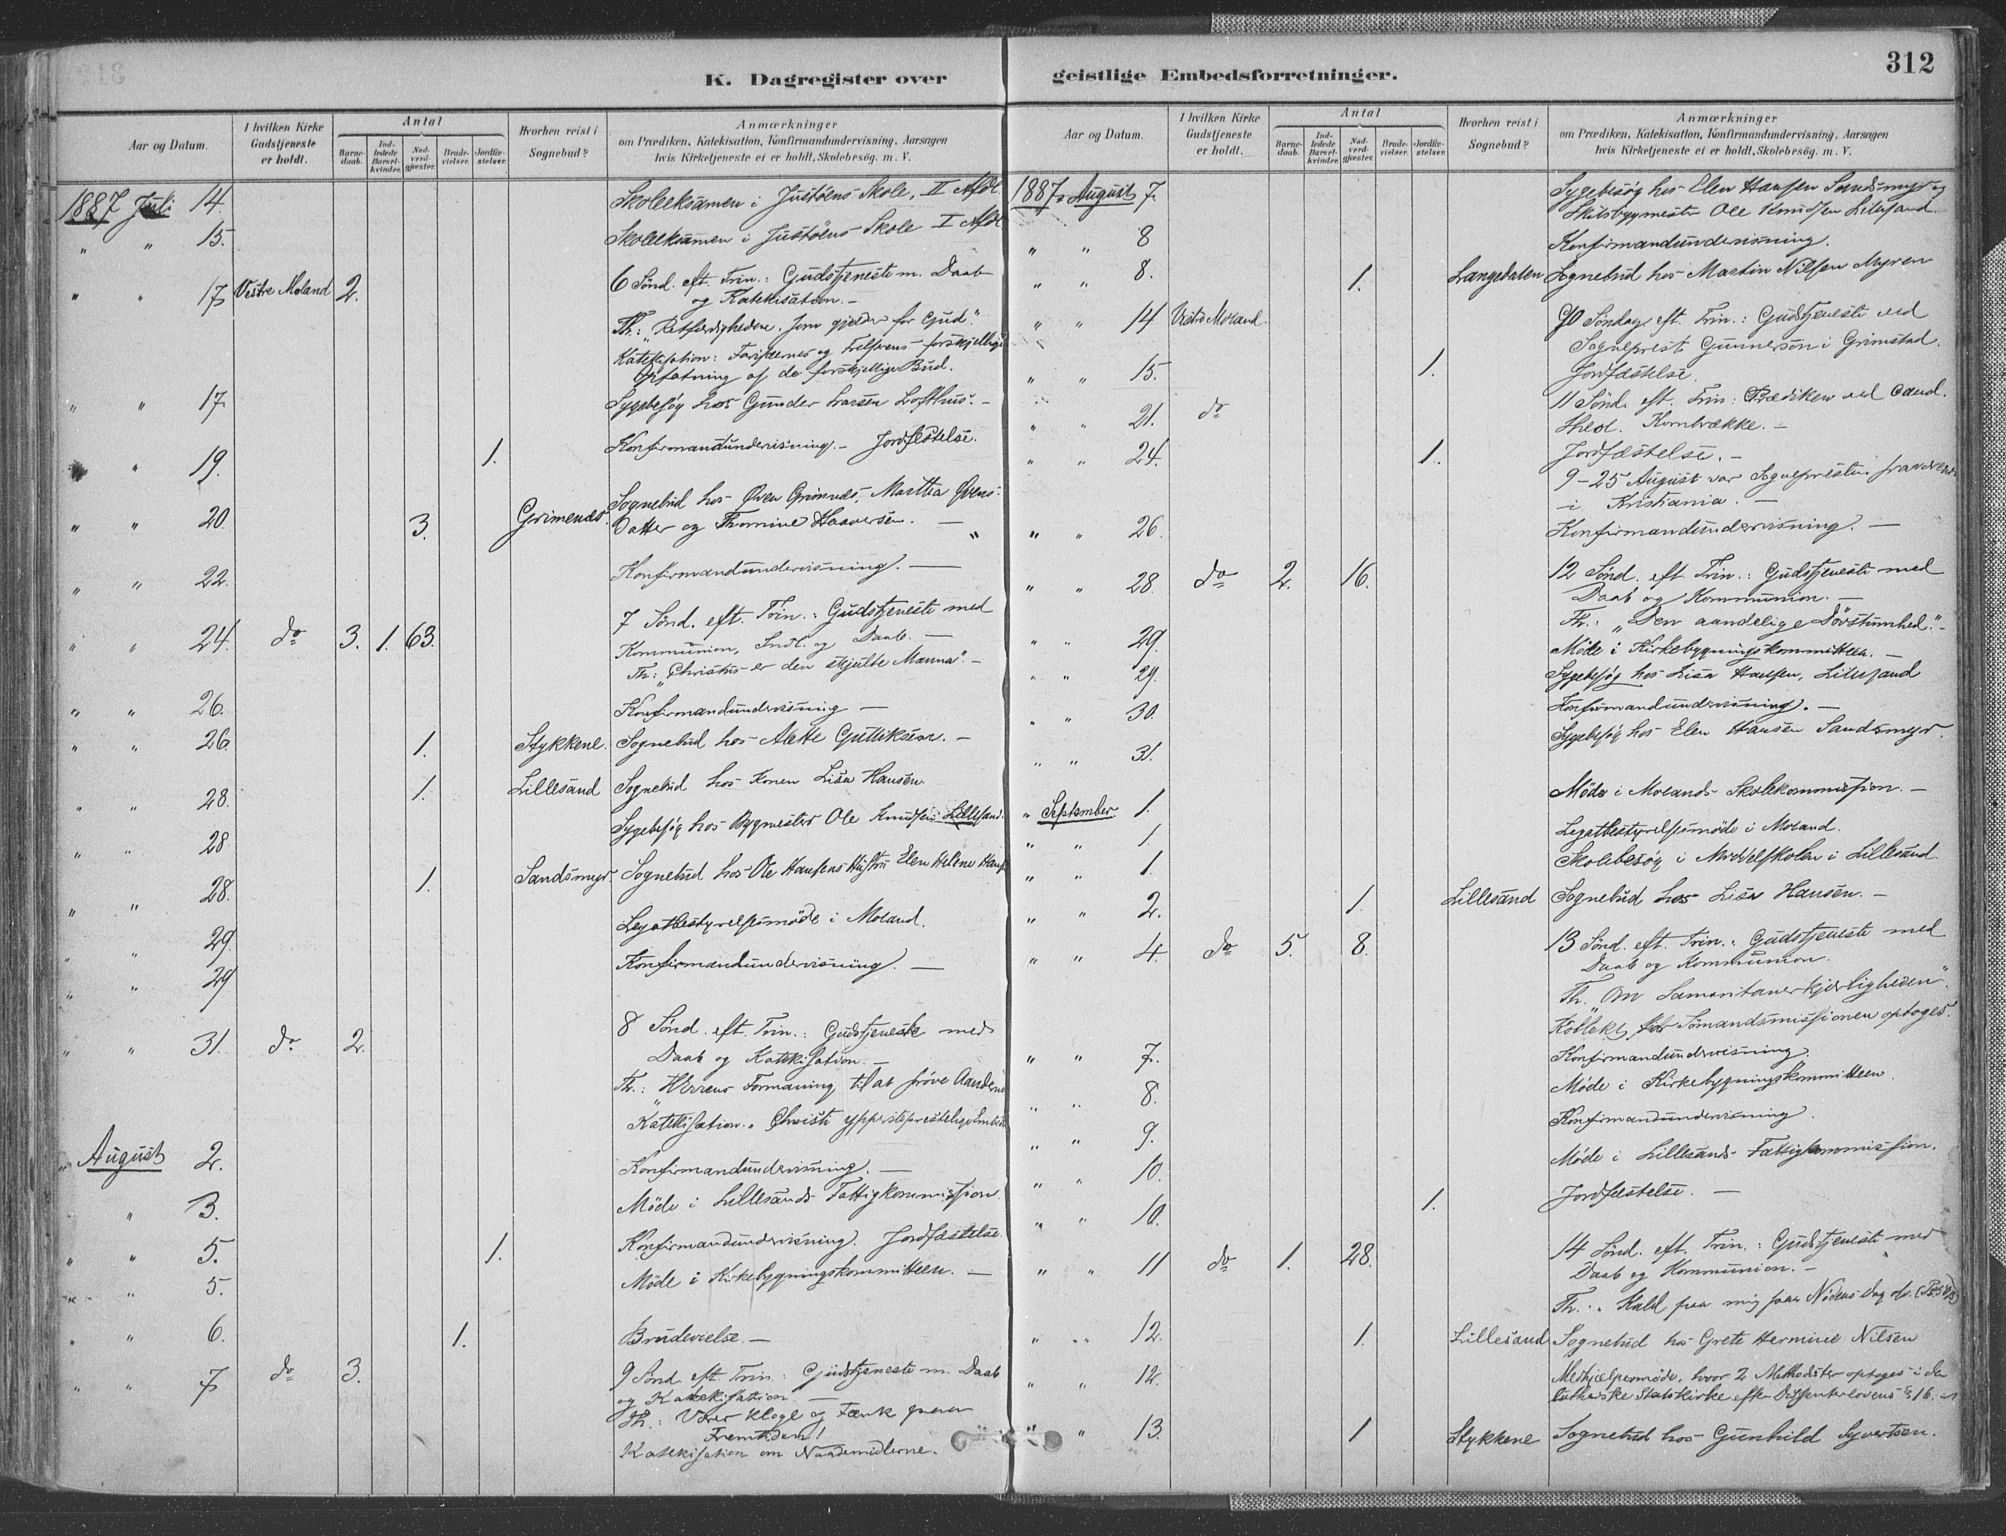 312
K. Dagregister over
Aar og Datum.
I hvilken Kirke Gudstjeneste er holdt.
Antal
Barnedaab.
Indledede Barselkvinder.
Nadverdgjæster.
Brudevielser.
Jordfæstelser.
Hvorhen reist i Sognebud?
Anmærkninger
om Prædiken, Katekisation, Konfirmandundervisning, Aarsagen
hvis Kirketjeneste ei er holdt, Skolebesøg. m. V.
1887 Juli 14. Skoleeksamen i Justøens Skole, II Afdl.
" " 15. Skoleeksamen i Justøens Skole I Afdl
" " 17 Vestre Moland 2. 6 Sønd. eft. Trin.: Gudstjeneste m. Daab
og Katekisation. –
Th.: "Retfærdigheden, som gjelder for Gud".
Katekisation: Farisæernes og Frelserens forskjellige
Opfatning af de forskjellige Bud.
" " 17. Sygebesøg hos Gunder Larsen Lofthus. –
" " 19. 1. Konfirmandundervisning. – Jordfæstelse.
" " 20 3. Grimenæs. Sognebud hos Øven Grimenæs, Martha Øvens-
Datter og Thomine Haaversen. –
" " 22. Konfirmandundervisning. –
" " 24. do 3. 1. 63. 7 Sønd. eft. Trin.: Gudstjeneste med
Kommunion, Indl. og Daab. –
Th.: "Christus er den skjulte Manna". –
" " 26. Konfirmandundervisning –
" " 26 1. Stykkene. Sognebud hos Alette Gulliksen. –
" " 28. 1. Lillesand Sognebud hos Konen Lisa Hansen.
" " 28 Sygebesøg hos Bygmester Ole Knudsen Lillesand.
" " 28. 1. Sandsmyr. Sognebud hos Ole Hansens Hustru Elen Helene
" " 29. Legatbestyrelsesmøde i Moland.
" " 29 Konfirmandundervisning. –
" " 31. do 2. 8 Sønd. eft. Trin.: Gudstjeneste med
Daab og Katekisation. –
Th.: "Herrens Formaning til at prøve Aanderne
Katekisation: Christi ypperstepræstelige Embede
" August 2. Konfirmandundervisning. –
" 3. Møde i Lillesands Fattigkommission
" " 5. 1. Konfirmandundervisning. Jordfæstelse.
" " 5. Møde i Kirkebygningskommitteen. –
" " 6. 1. Brudevielse –
" " 7 do 3. 9 Sønd eft. Trin: Gudstjeneste m. Daab
og Katekisation –
Th.: Vær kloge og tænk paa
Fremtiden!
Katekisation om Naademidlerne.
geistlige Embedsforretninger.
Aar og Datum.
I hvilken Kirke Gudstjeneste er holdt.
Antal
Barnedaab.
Indledede Barselkvinder.
Nadverdgjæster.
Brudevielser.
Jordfæstelser.
Hvorhen reist i Sognebud?
Anmærkninger
om Prædiken, Katekisation, Konfirmandundervisning, Aarsagen
hvis Kirketjeneste ei er holdt, Skolebesøg. m. V.
1887 August 7. Sygebesøg hos Elen Hansen Sandsmyr og
Skibsbygmester Ole Knudsen Lillesand.
" " 8 Konfirmandundervisning.
" " 8. 1. Langedalen Sognebud hos Martin Nilsen Myren
" " 14 Vestre Moland. 10 Søndag eft. Trin.: Gudstjeneste ved
Sogneprest Gunnersøn i Grimstad.
" " 15. 1. Jordfæstelse.
" " 21. do 11 Sønd. eft. Trin: Prædiken ved Cand.
theol. Kornbrække. –
" " 24. 1. Jordfæstelse. –
9–25 August var Sognepresten fraværende
i Kristiania. –
" " 26. Konfirmandundervisning. –
" " 28. do 2. 16. 12 Sønd. eft Trin.: Gudstjeneste med
Daab og Kommunion. –
Th.: "Den aandelige Døvstumhed." –
" " 29. Møde i Kirkebygningskommitteen. –
" " 29. Sygebesøg hos Lisa Hansen, Lillesand
" " 30. Konfirmandundervisning. –
" " 31. Sygebesøg hos Elen Hansen Sandsmyr.
" September 1. Møde i Molands Skolekommission. –
" " 1. Legatbestyrelsesmøde i Moland.
" " 1. Skolebesøg i Middelskolen i Lillesand
" " 2. 1. Lillesand Sognebud hos Lisa Hansen. –
" " 4. do 5. 8. 13 Sønd. eft. Trin.: Gudstjeneste med
Daab og Kommunion.
Th. "Om Samaritanerkjærligheden".
Kollekt for Sømandsmissionen optoges.
" " 7. Konfirmandundervisning.
" " 8. Møde i Kirkebygningskommitteen.
" " 9. Konfirmandundervisning.
" " 10. Møde i Lillesands Fattigkommission.
" " 10. 1. Jordfæstelse. –
" " 11 do 1. 28. 14 Sønd. eft. Trin.: Gudstjeneste med
Daab og Kommunion. –
Th.: "Kald paa mig paa Nødens Dag
" " 12. 1. Lillesand Sognebud hos Grete Hermine Nilsen
" " 12. Medhjælpermøde, hvor 2 Methodister optoges i den
lutherske Statskirke efter Dissenterlovens § 16.
" 13. 1 Stykkene Sognebud hos Gunhild Syvertsen.